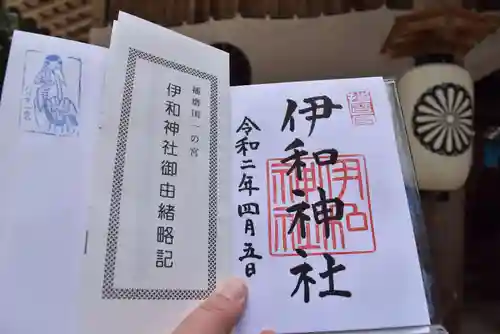 伊和神社
伊和
神社
令和二年四月五日
播磨国一の宮
伊和神社御由緒略記